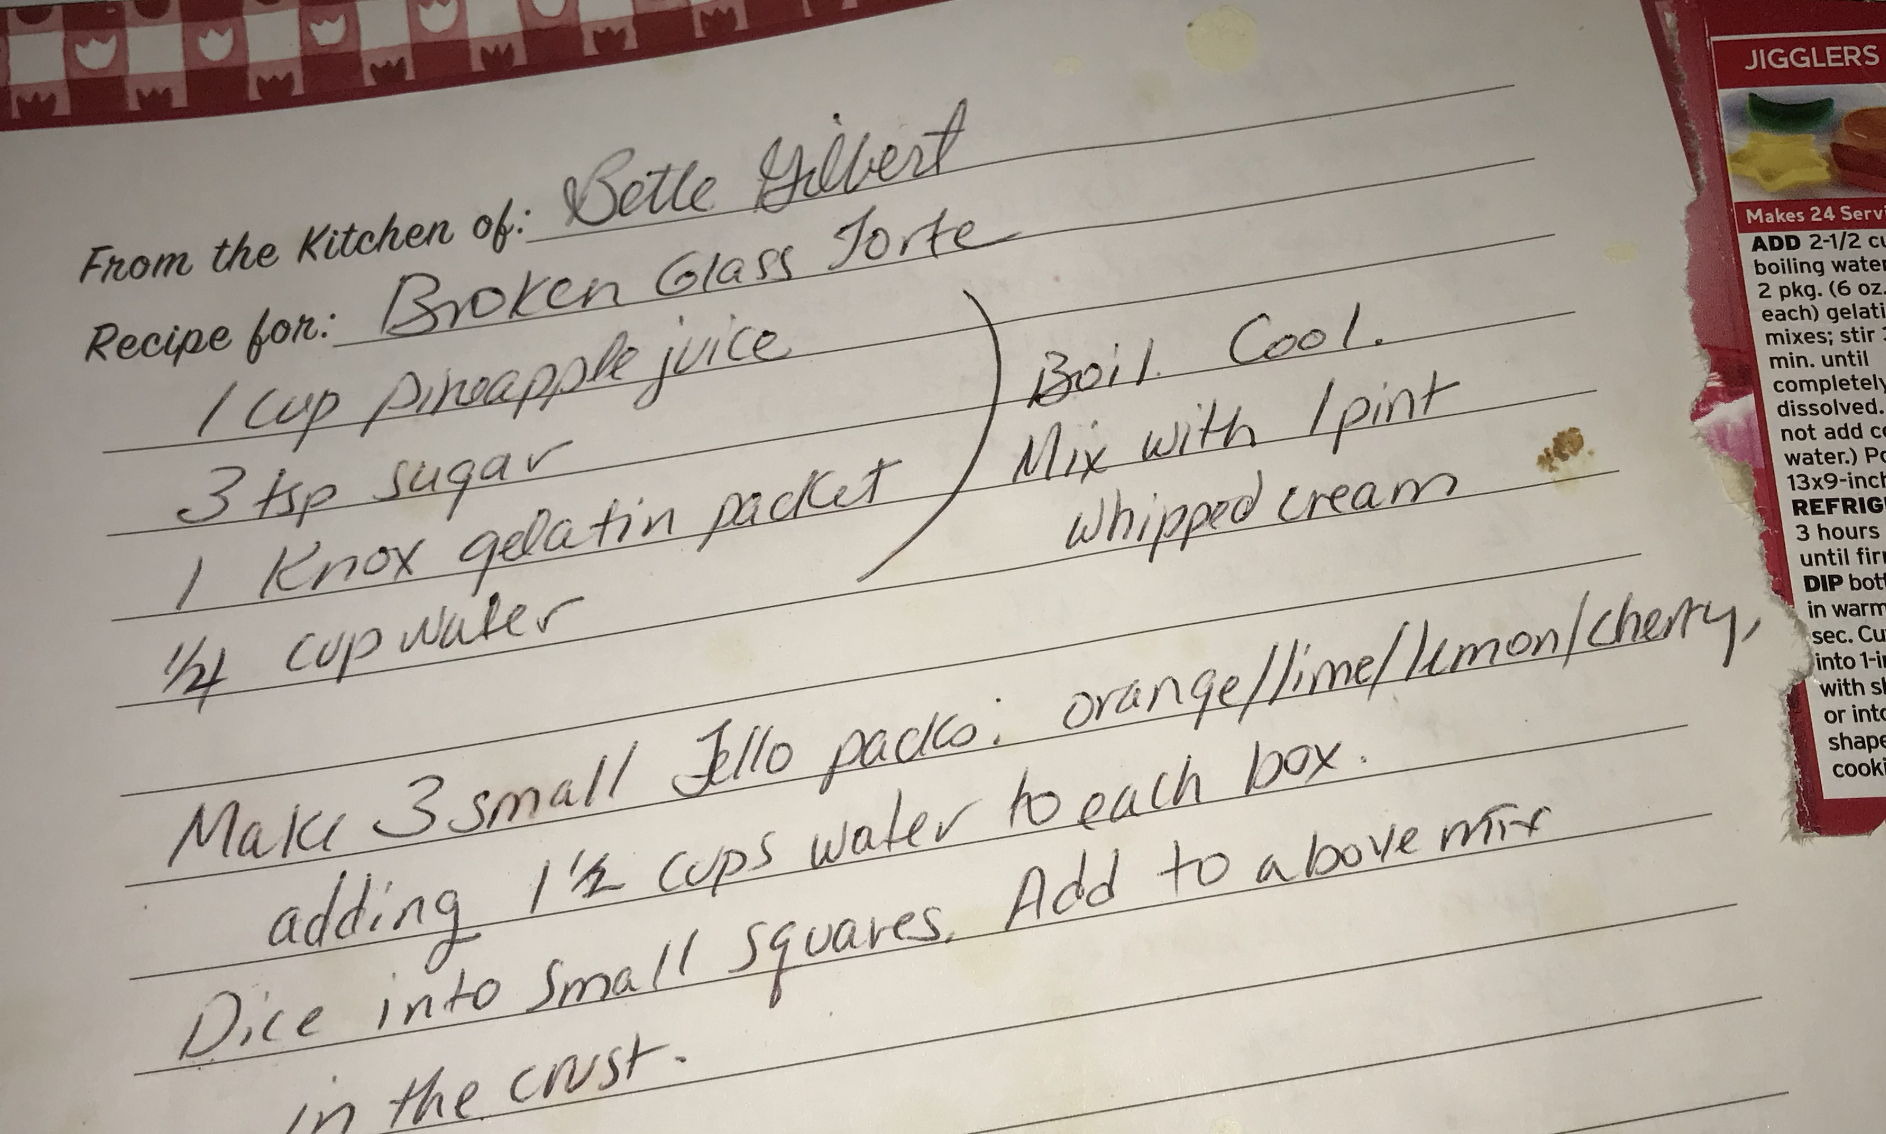 From the Kitchen of: Bette Gilbert
Recipe for: Broken Glass Torte
1 cup pineapple juice
3 tsp sugar
1 Knox gelatin packet
1/4 cup water
Boil. Cool.
Mix with 1 pint
whipped cream
Make 3 small Jello packs: orange/lime/lemon/cherry,
adding 1 1/2 cups water to each box.
Dice into small squares. Add to above mix
in the crust.
JIGGLERS
Makes 24 Servi
ADD 2-1/2 cu
boiling water
2 pkg. (6 oz.
each) gelati
mixes; stir
min. until
completely
dissolved.
not add co
water.) Po
13x9-inch
REFRIG
3 hours
until fir
DIP bott
in warm
sec. Cu
into 1-i
with sh
or into
shape
cooki